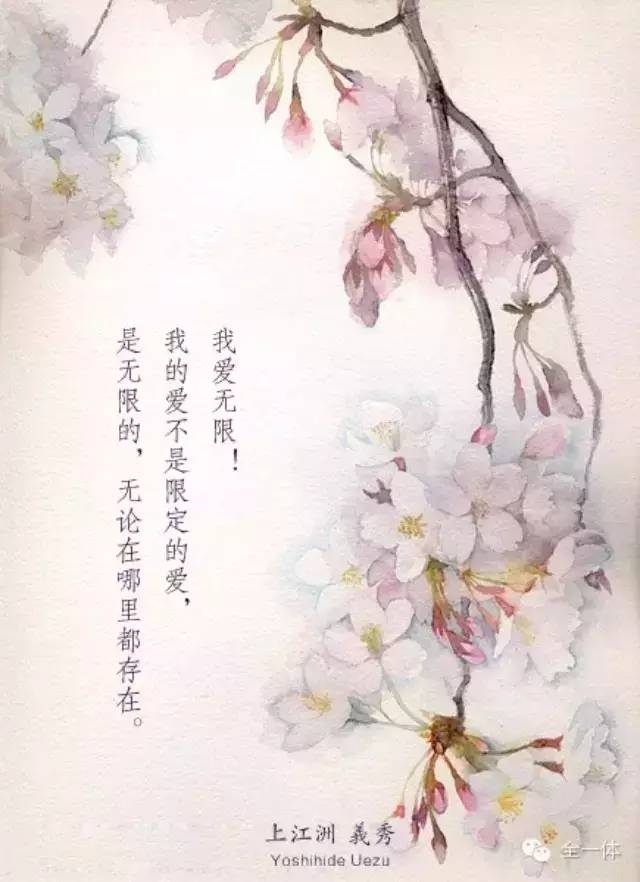 我爱无限！
我的爱不是限定的爱，
是无限的，无论在哪里都存在。
上江洲 義秀
Yoshihide Uezu
全一体